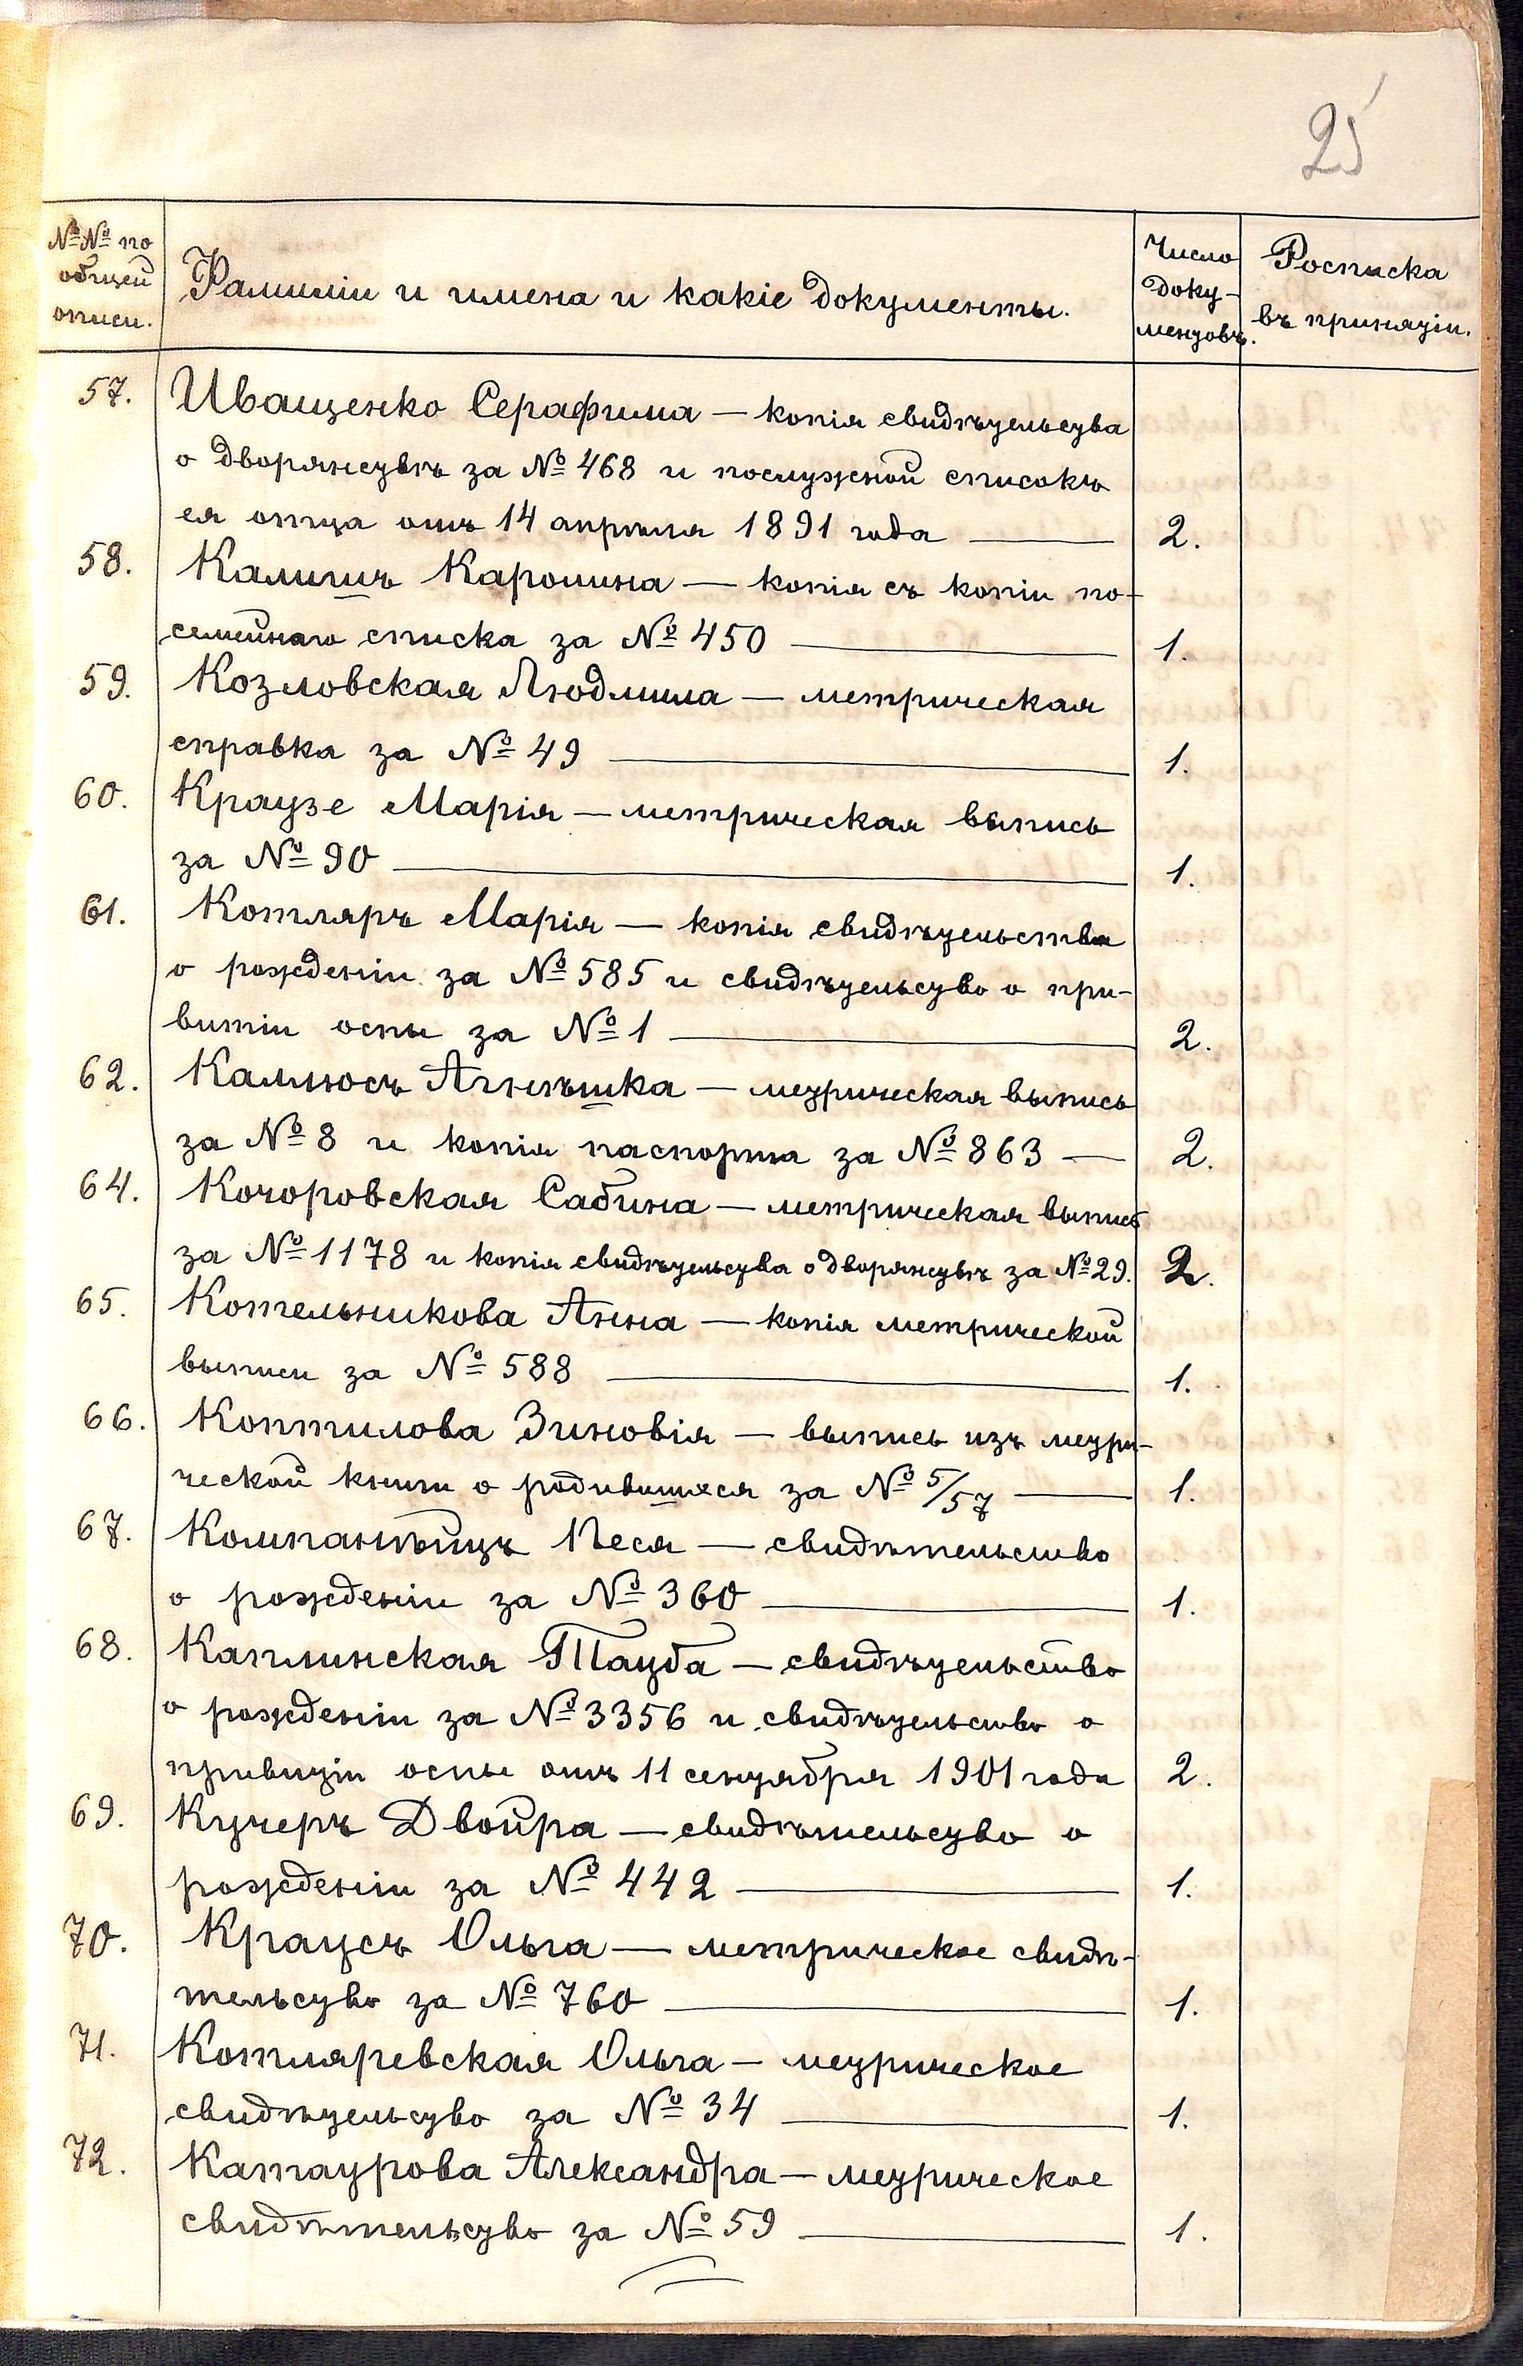 25
№№ по
общей
описи.
Фамиліи и имена и какіе документы.
Число
доку-
ментовъ.
Росписка
въ принятіи.
57. Иващенко Серафима — копія свидѣтельства
о дворянствѣ за № 468 и послужной списокъ
ея отца отъ 14 апрѣля 1891 года — 2.
58. Калишъ Каролина — копія съ копіи по-
семейнаго списка за № 450 — 1.
59. Козловская Людмила — метрическая
справка за № 49 — 1.
60. Краузе Марія — метрическая выпись
за № 90 — 1.
61. Котляръ Марія — копія свидѣтельства
о рожденіи за № 585 и свидѣтельство о при-
витіи оспы за № 1 — 2.
62. Каллюсъ Агнѣшка — метрическая выпись
за № 8 и копія паспорта за № 863 — 2.
64. Кочоровская Сабина — метрическая выпись
за № 1178 и копія свидѣтельства о дворянствѣ за № 29. 2.
65. Котельникова Анна — копія метрической
выписи за № 588 — 1.
66. Коптилова Зиновія — выпись изъ метри-
ческой книги о родившихся за № 5/57 — 1.
67. Компанѣйцъ Песя — свидѣтельство
о рожденіи за № 360 — 1.
68. Каплинская Тауба — свидѣтельство
о рожденіи за № 3356 и свидѣтельство о
привитіи оспы отъ 11 сентября 1901 года 2.
69. Кучеръ Двойра — свидѣтельство о
рожденіи за № 442 — 1.
70. Краусъ Ольга — метрическое свидѣ-
тельство за № 760 — 1.
71. Котляревская Ольга — метрическое
свидѣтельство за № 34 — 1.
72. Катаурова Александра — метрическое
свидѣтельство за № 59 — 1.